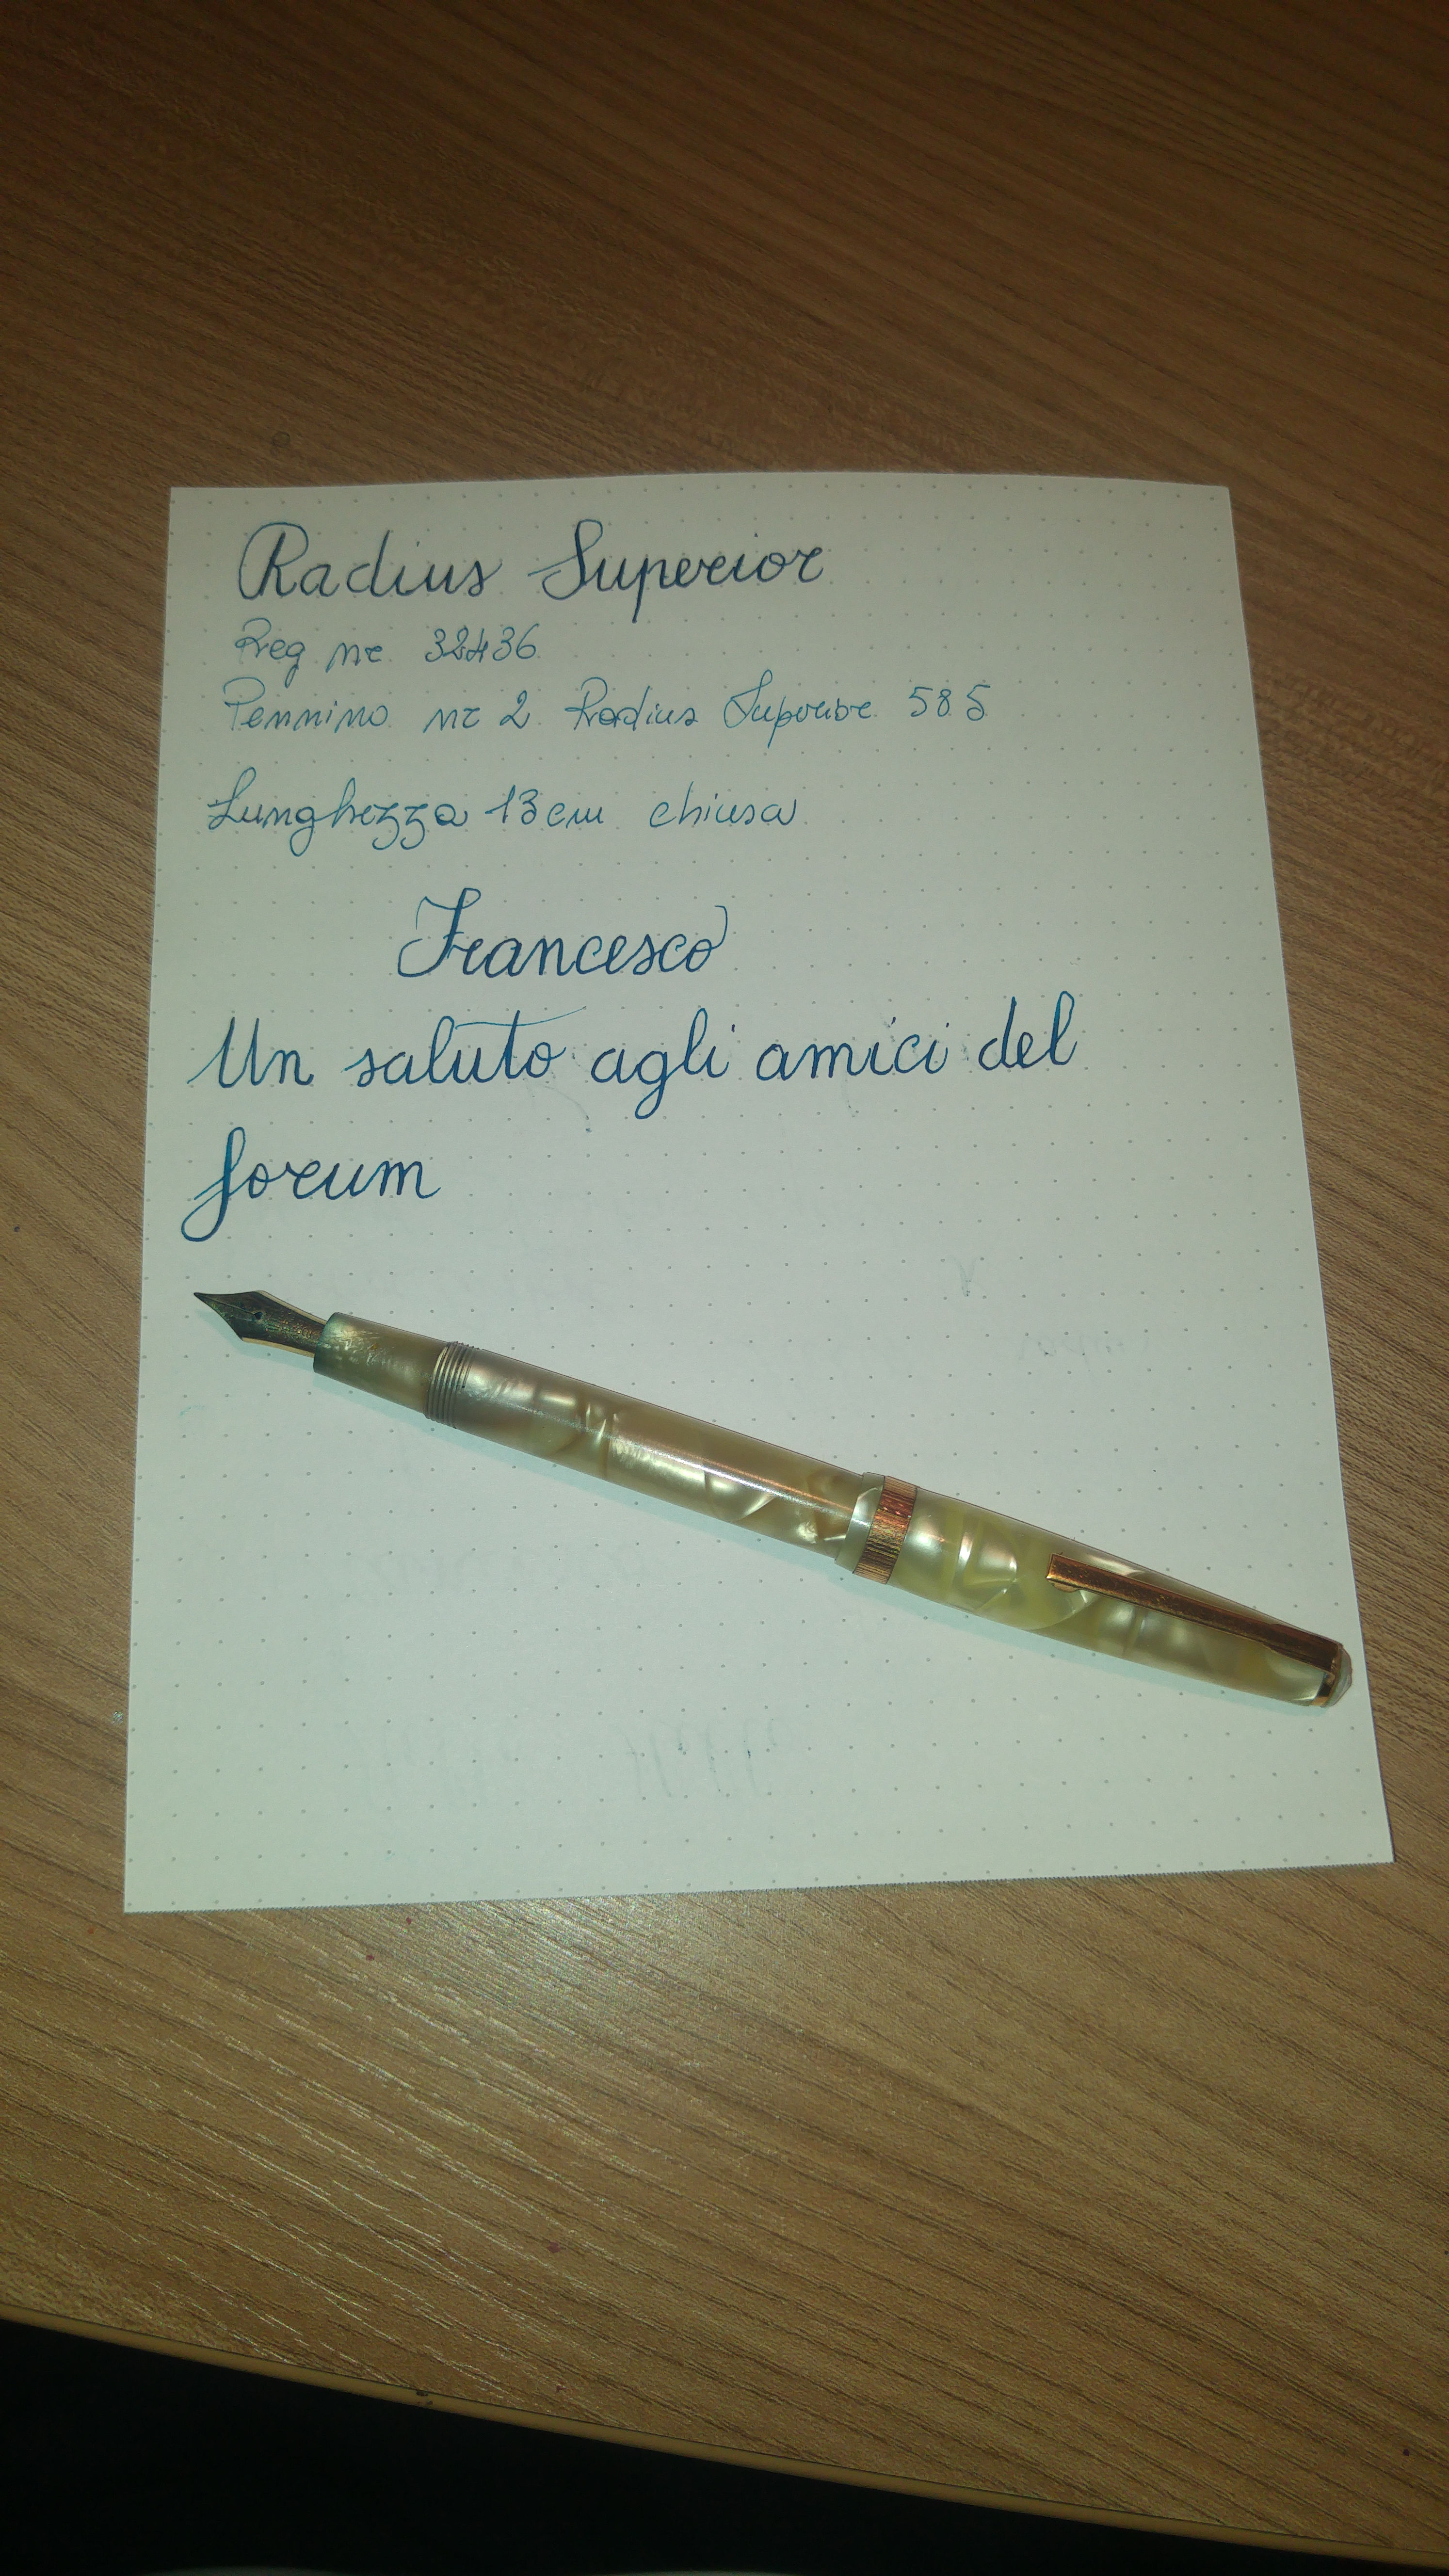 Radius Superior
Reg nr 32436
Pennino nr 2 Radius Superior 585
Lunghezza 13cm chiusa
Francesco
Un saluto agli amici del
forum